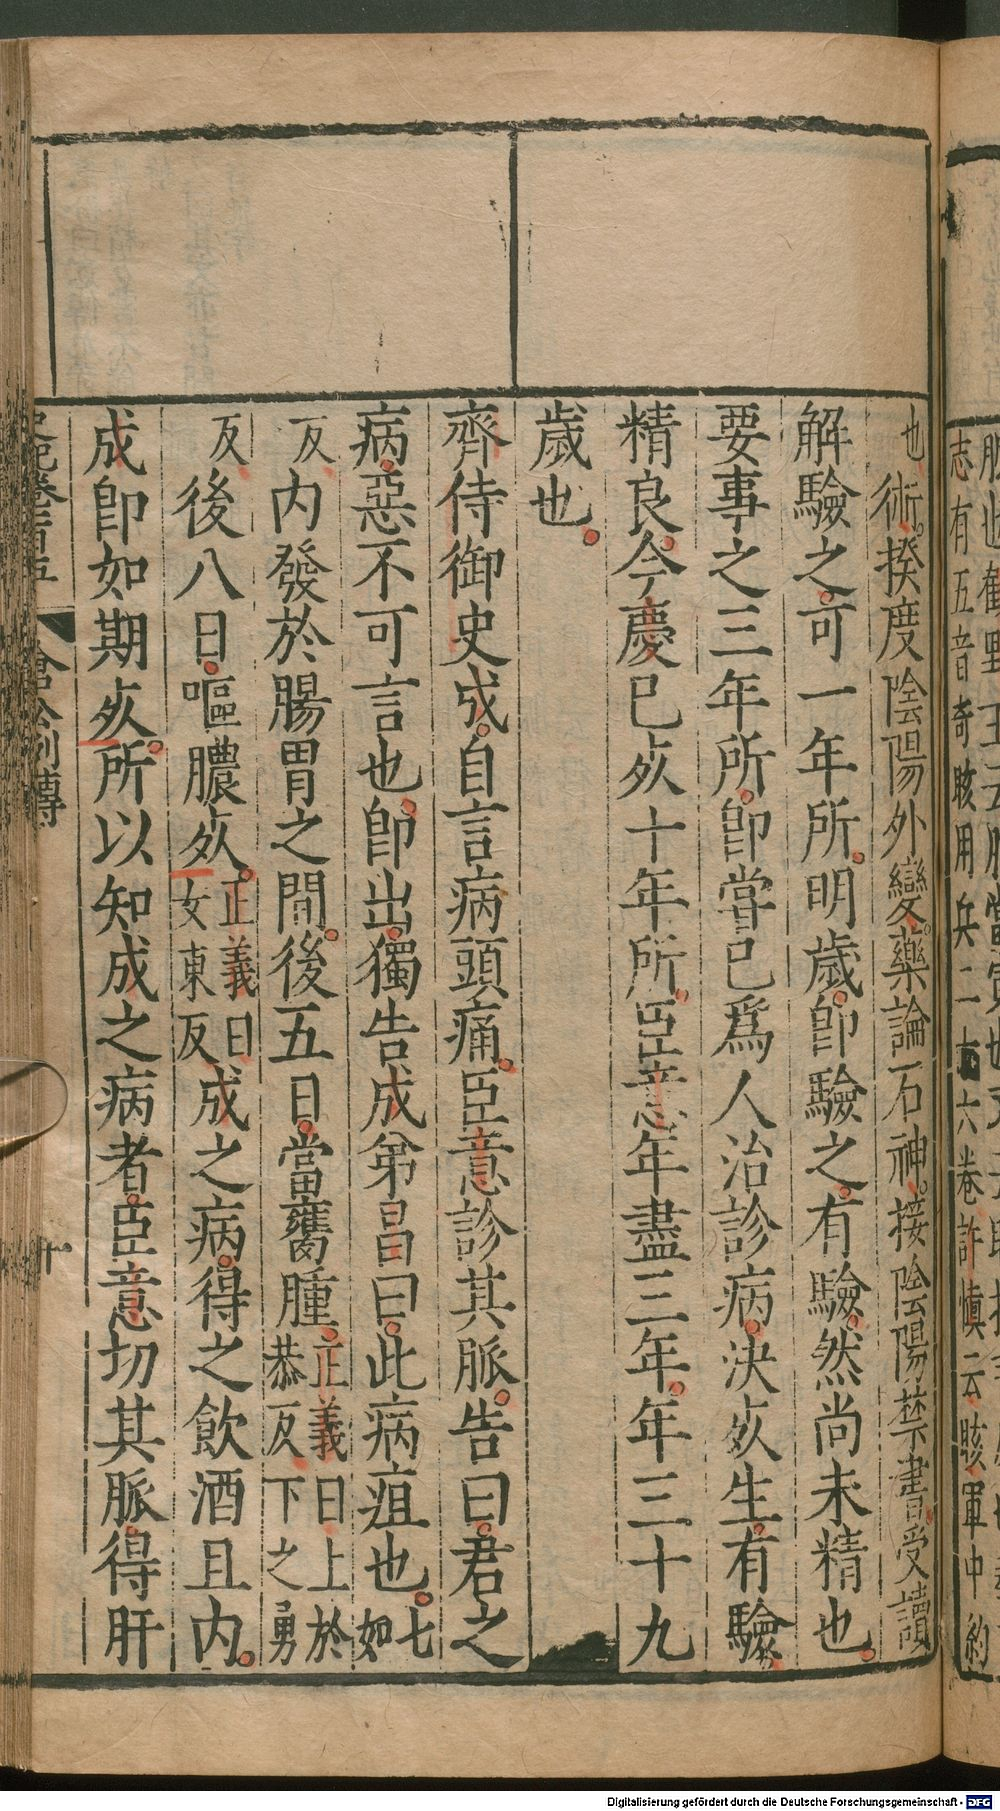 志有五音奇胲用兵二十六卷許慎云胲軍中約
也術揆度陰陽外變藥論石神接陰陽禁書受讀
解驗之可一年所明歲即驗之有驗然尚未精也
要事之三年所即嘗已爲人治診病決死生有驗
精良今慶已死十年所臣意年盡三年年三十九
歲也
齊侍御史成自言病頭痛臣意診其脈告曰君之
病惡不可言也即出獨告成弟昌曰此病疽也七如
反内發於腸胃之間後五日當𦡱腫正義曰上於恭反下之勇
反後八日嘔膿死正義曰女東反成之病得之飲酒且内
成即如期死所以知成之病者臣意切其脈得肝
倉公列傳
十
Digitalisierung gefördert durch die Deutsche Forschungsgemeinschaft - DFG